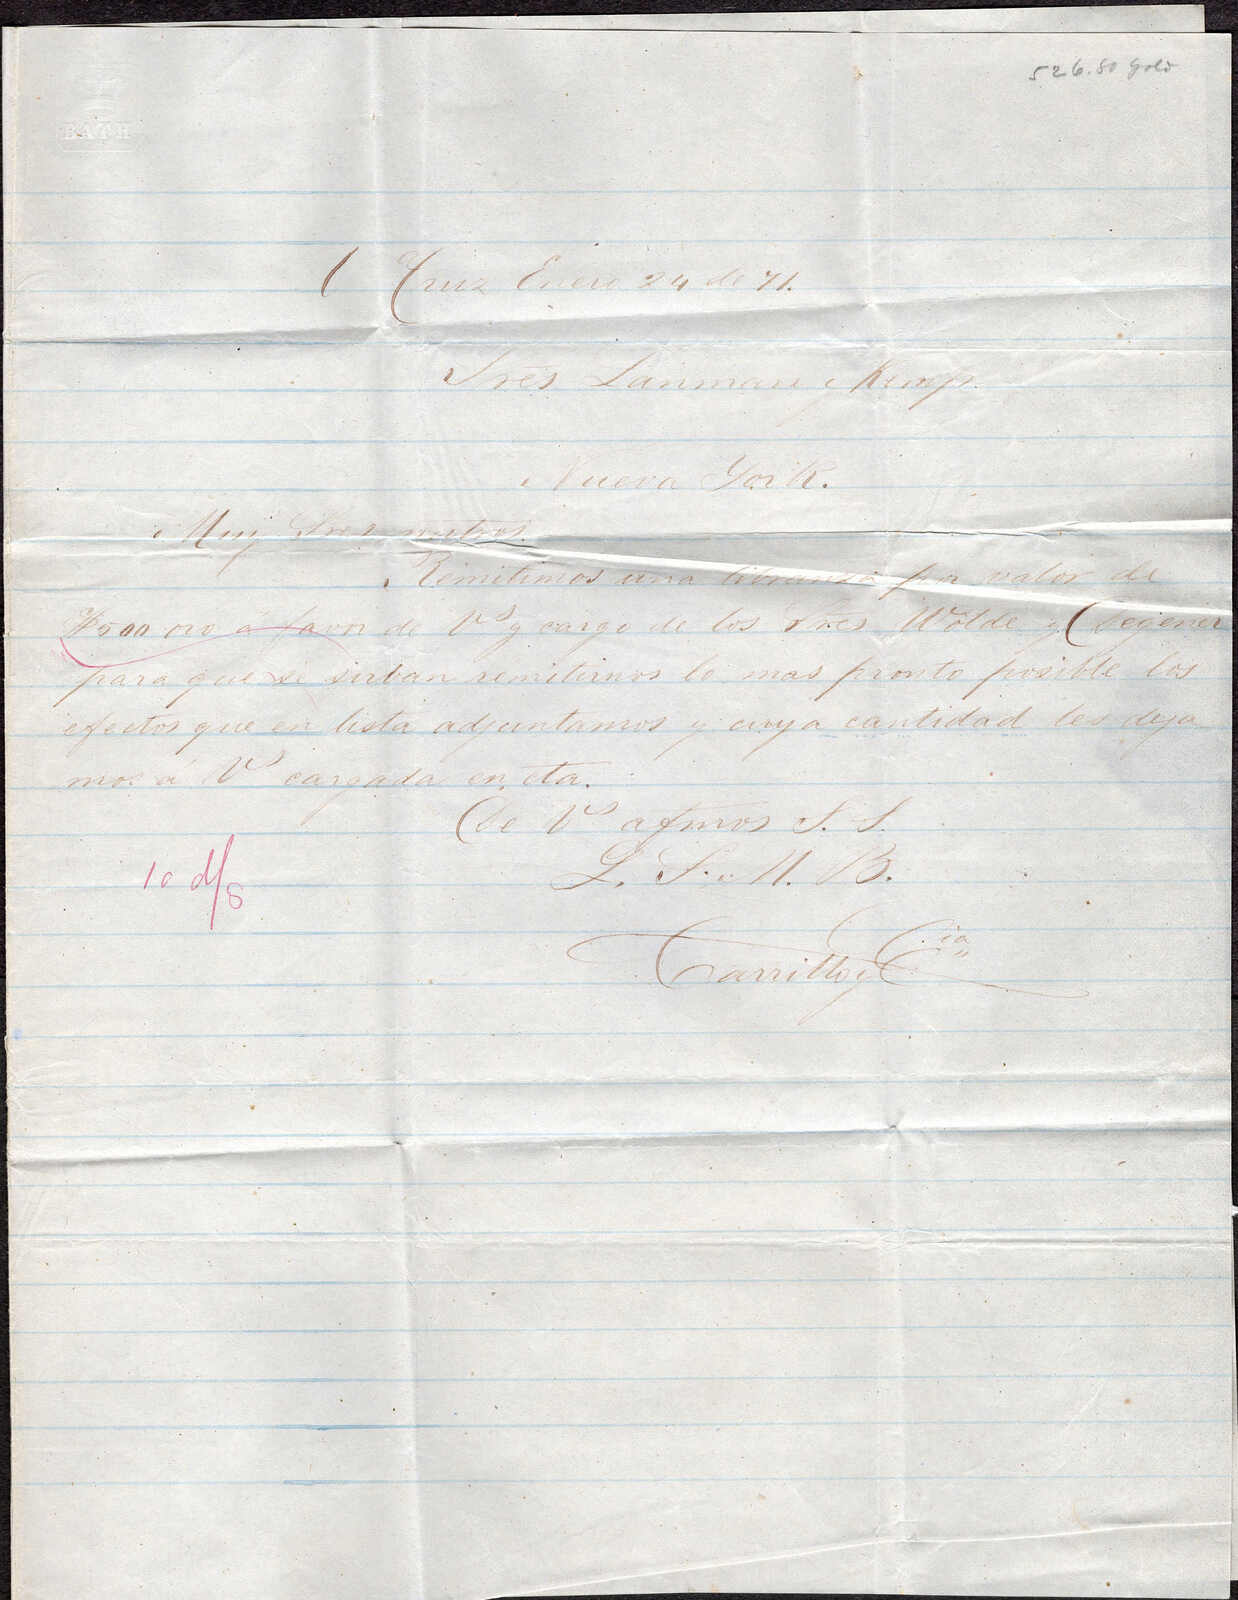 526.80 Gold
BATH
Cruz Enero 24 de 71.
Sres Lanman y Kemp.
Nueva York.
Muy Sres nuestros.
Remitimos una libranza por valor de
$500 oro á favor de Vs y cargo de los Sres Wolde y Degener
para que se sirban remitirnos lo mas pronto posible los
efectos que en lista adjuntamos y cuya cantidad les deja
mos á Vs cargada en cta.
De Vs afmos S. S.
L. S. M. B.
Carrillo y Cia
10 d/s